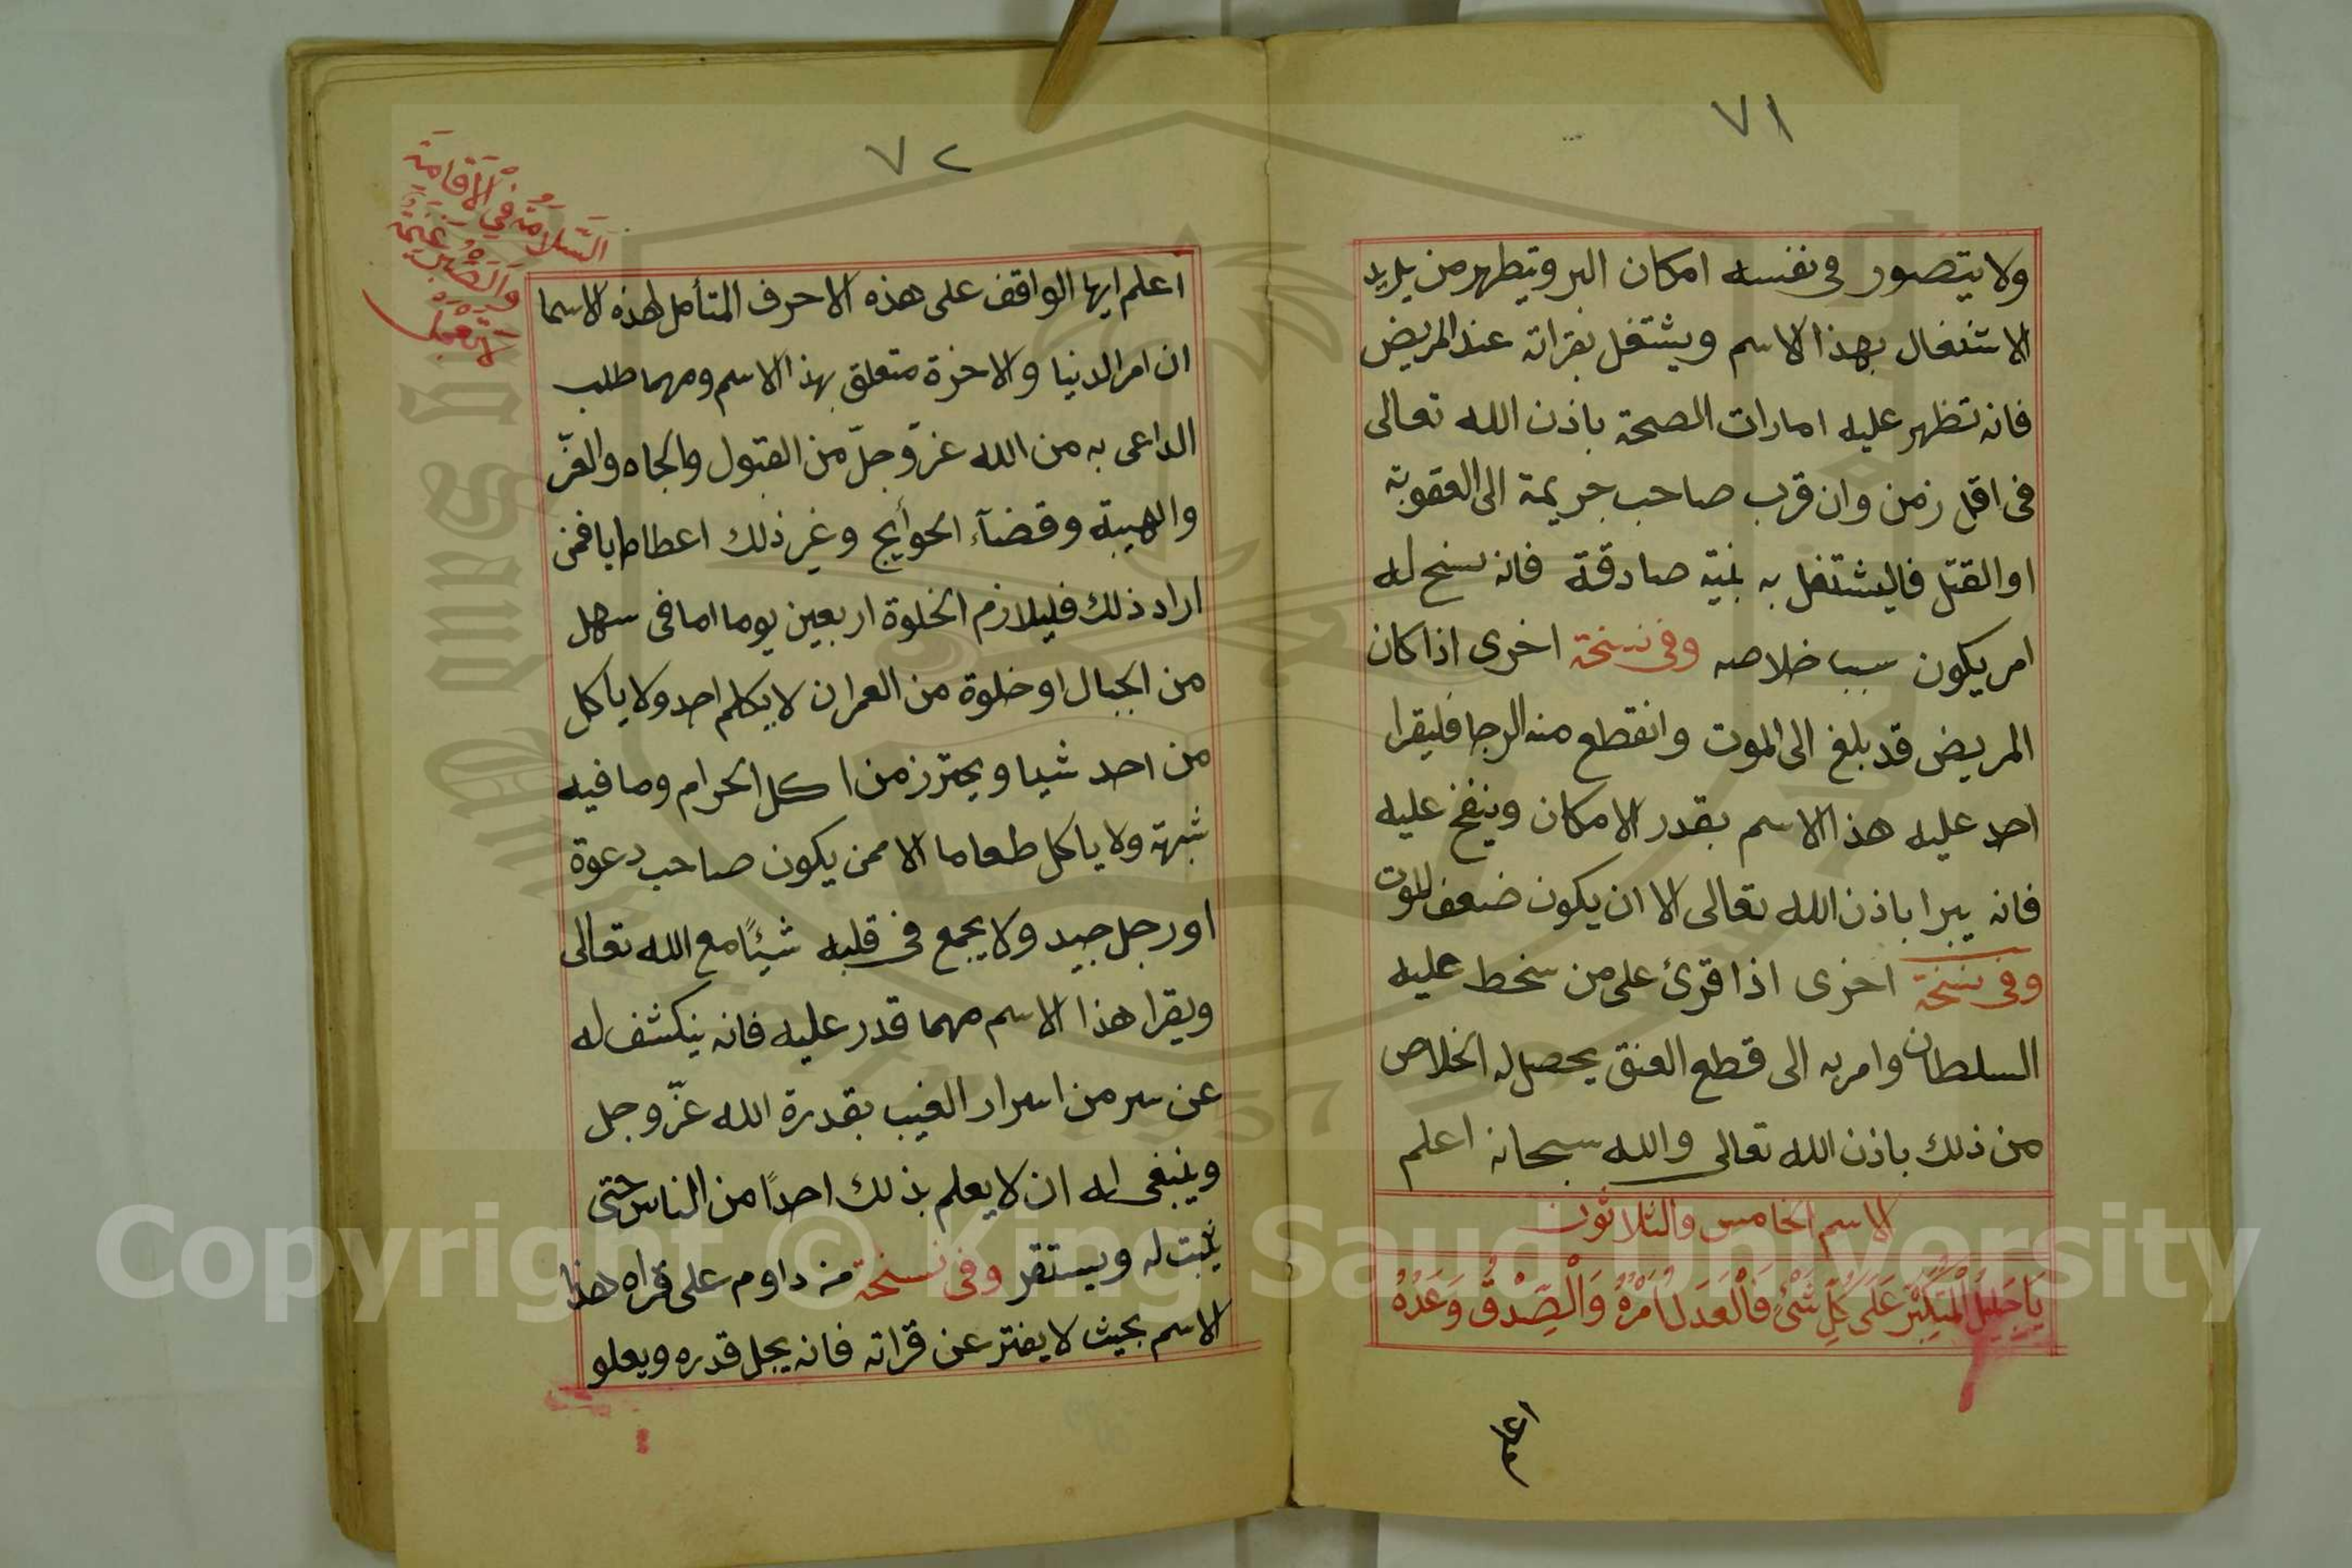 ٧١
ولا يتصور فى نفسه امكان البر ويتطهر من يريد
الاشتغال بهذا الاسم ويشتغل بقراته عند المريض
فانه تظهر عليه امارات الصحة باذن الله تعالى
فى اقل زمن وان قرب صاحب جريمة الى العقوبة
او القتل فاليشتغل به بنية صادقة فانه يسنح له
امر يكون سببا خلاصه وفى نسخة اخرى اذا كان
المريض قد بلغ الى الموت وانقطع منه الرجا فليقرا
احد عليه هذا الاسم بقدر الامكان وينفخ عليه
فانه يبرا باذن الله تعالى الا ان يكون ضعف الموت
وفى نسخة اخرى اذا قرئ على من سخط عليه
السلطان وامر به الى قطع العنق يحصل له الخلاص
من ذلك باذن الله تعالى والله سبحانه اعلم
الاسم الخامس والثلاثون
يَا جَلِيلُ الْمُتَكَبِّرُ عَلَى كُلِّ شَىْءٍ فَالْعَدْلُ اَمْرُهُ وَالْصِّدْقُ وَعْدُهُ
اعلم
٧٢
السَّلَامَةُ فِي الْاِقَامَةِ
وَالصَّبْرُ غَنِيمَةٌ
لا تعجل
اعلم ايها الواقف على هذه الاحرف المتأمل لهذه الاسما
ان امر الدنيا والاخرة متعلق بهذا الاسم ومهما طلب
الداعى به من الله عزّ وجلّ من القبول والجاه والعزّ
والهيبة وقضآء الحوأيج وغير ذلك اعطاه ايا فمن
اراد ذلك فليلازم الخلوة اربعين يوما اما فى سهل
من الجبال او خلوة من العمران لا يكلم احد ولا ياكل
من احد شيا ويحترز من اكل الحرام وما فيه
شبهة ولا ياكل طعاما الا ممن يكون صاحب دعوة
او رجل جيد ولا يجمع فى قلبه شيئًا مع الله تعالى
ويقرا هذا الاسم مهما قدر عليه فانه ينكشف له
عن سر من اسرار الغيب بقدرة الله عزّ وجل
وينبغى له ان لا يعلم بذلك احدًا من الناس حتى
يثبت له ويستقر وفى نسخة من داوم على قراه هذا
الاسم بحيث لا يفتر عن قراته فانه يجل قدره ويعلو
Copyright © King Saud University